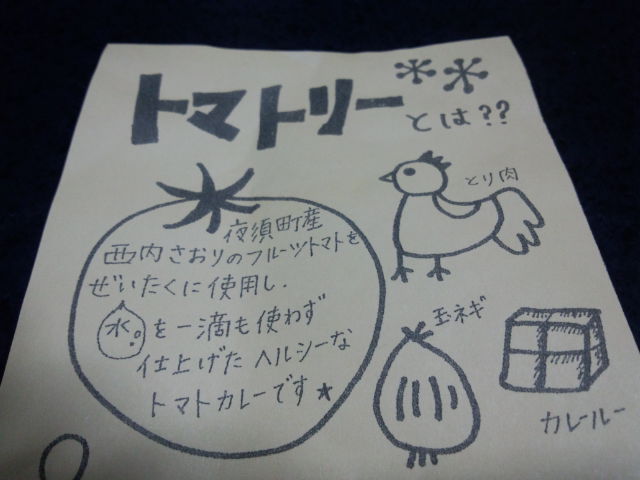 トマトリー**
とは??
とり肉
夜須町産
西内さおりのフルーツトマトを
ぜいたくに使用し、
水。を一滴も使わず
仕上げたヘルシーな
トマトカレーです★
玉ネギ
カレールー